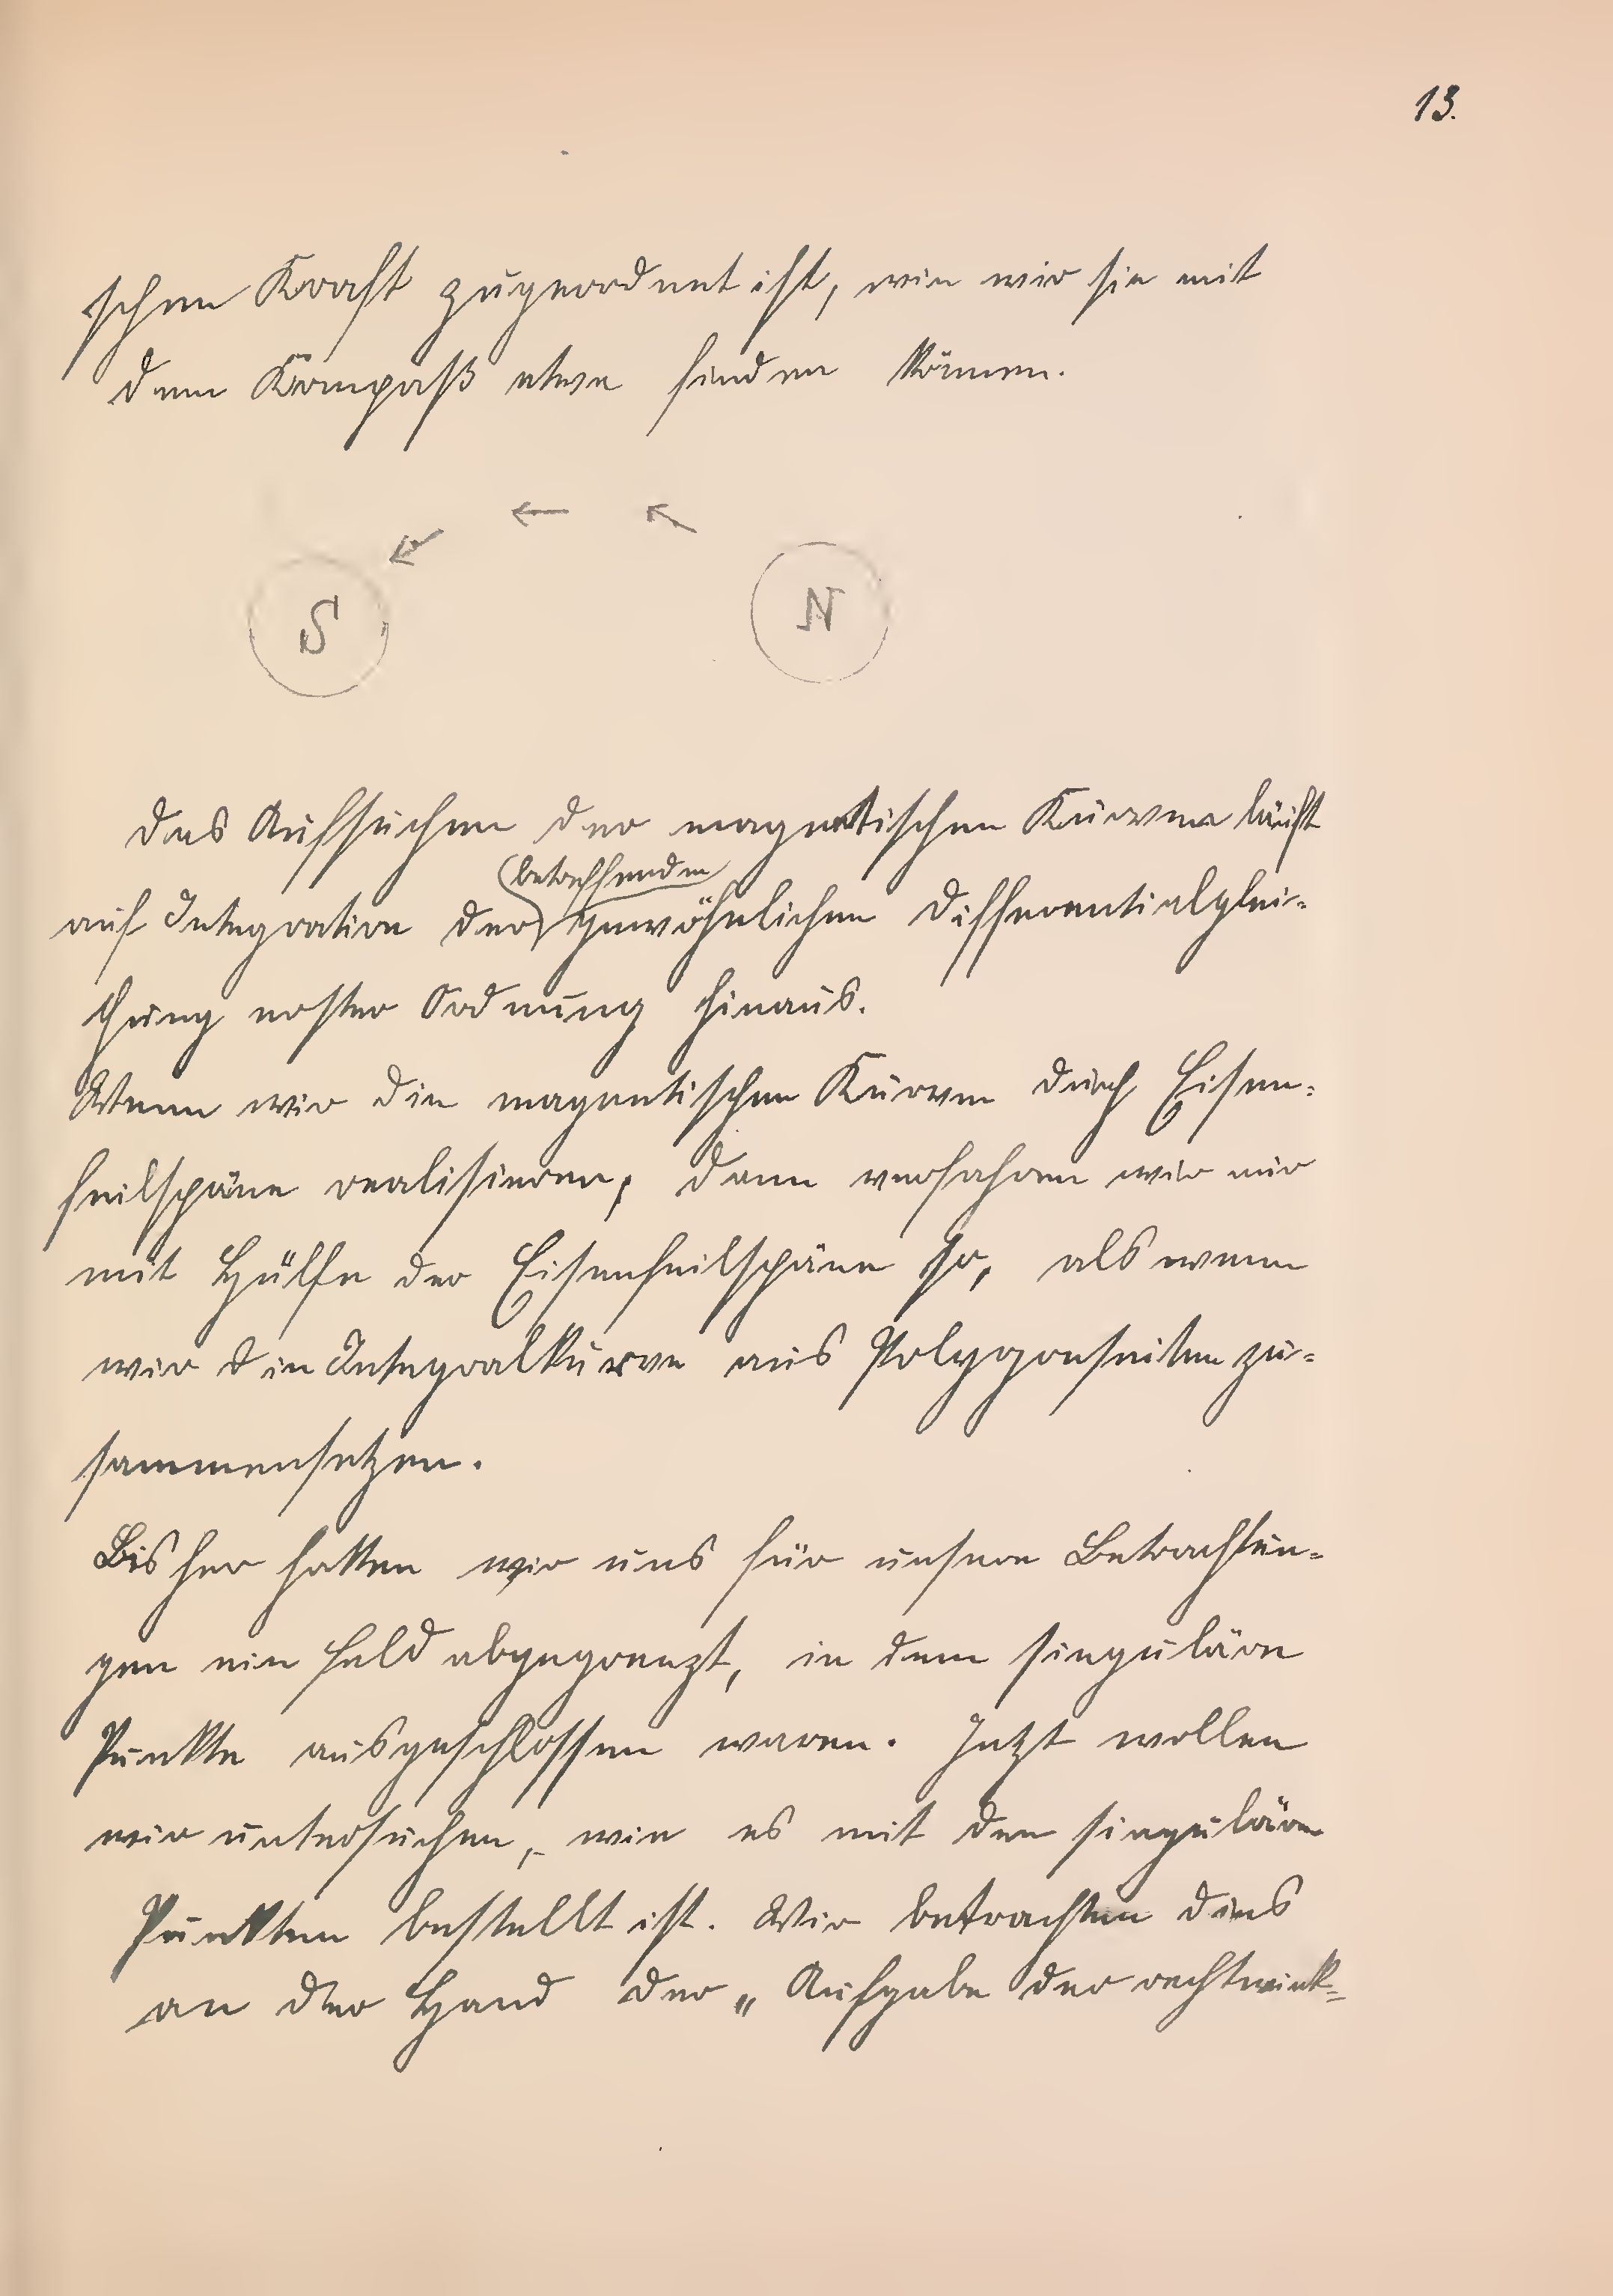 13.
schen Kraft zugeordnet ist, wie wir sie mit
dem Kompaß etwa finden können.
S N
Das Aufsuchen der magnetischen Kurven läuft
betreffenden
auf Integration der gewöhnlichen Differentialglei-
chung erster Ordnung hinaus.
Wenn wir die magnetischen Kurven durch Eisen-
feilspäne realisieren, dann verfahren wir nur
mit Hülfe der Eisenfeilspäne so, als wenn
wir die Integralkurve aus Polygonseiten zu-
sammensetzen.
Bisher hatten wir uns für unsere Betrachtun-
gen ein Feld abgegrenzt, in dem singuläre
Punkte ausgeschlossen waren. Jetzt wollen
wir untersuchen, wie es mit den singulären
Punkten bestellt ist. Wir betrachten dies
an der Hand der „Aufgabe der rechtwink-